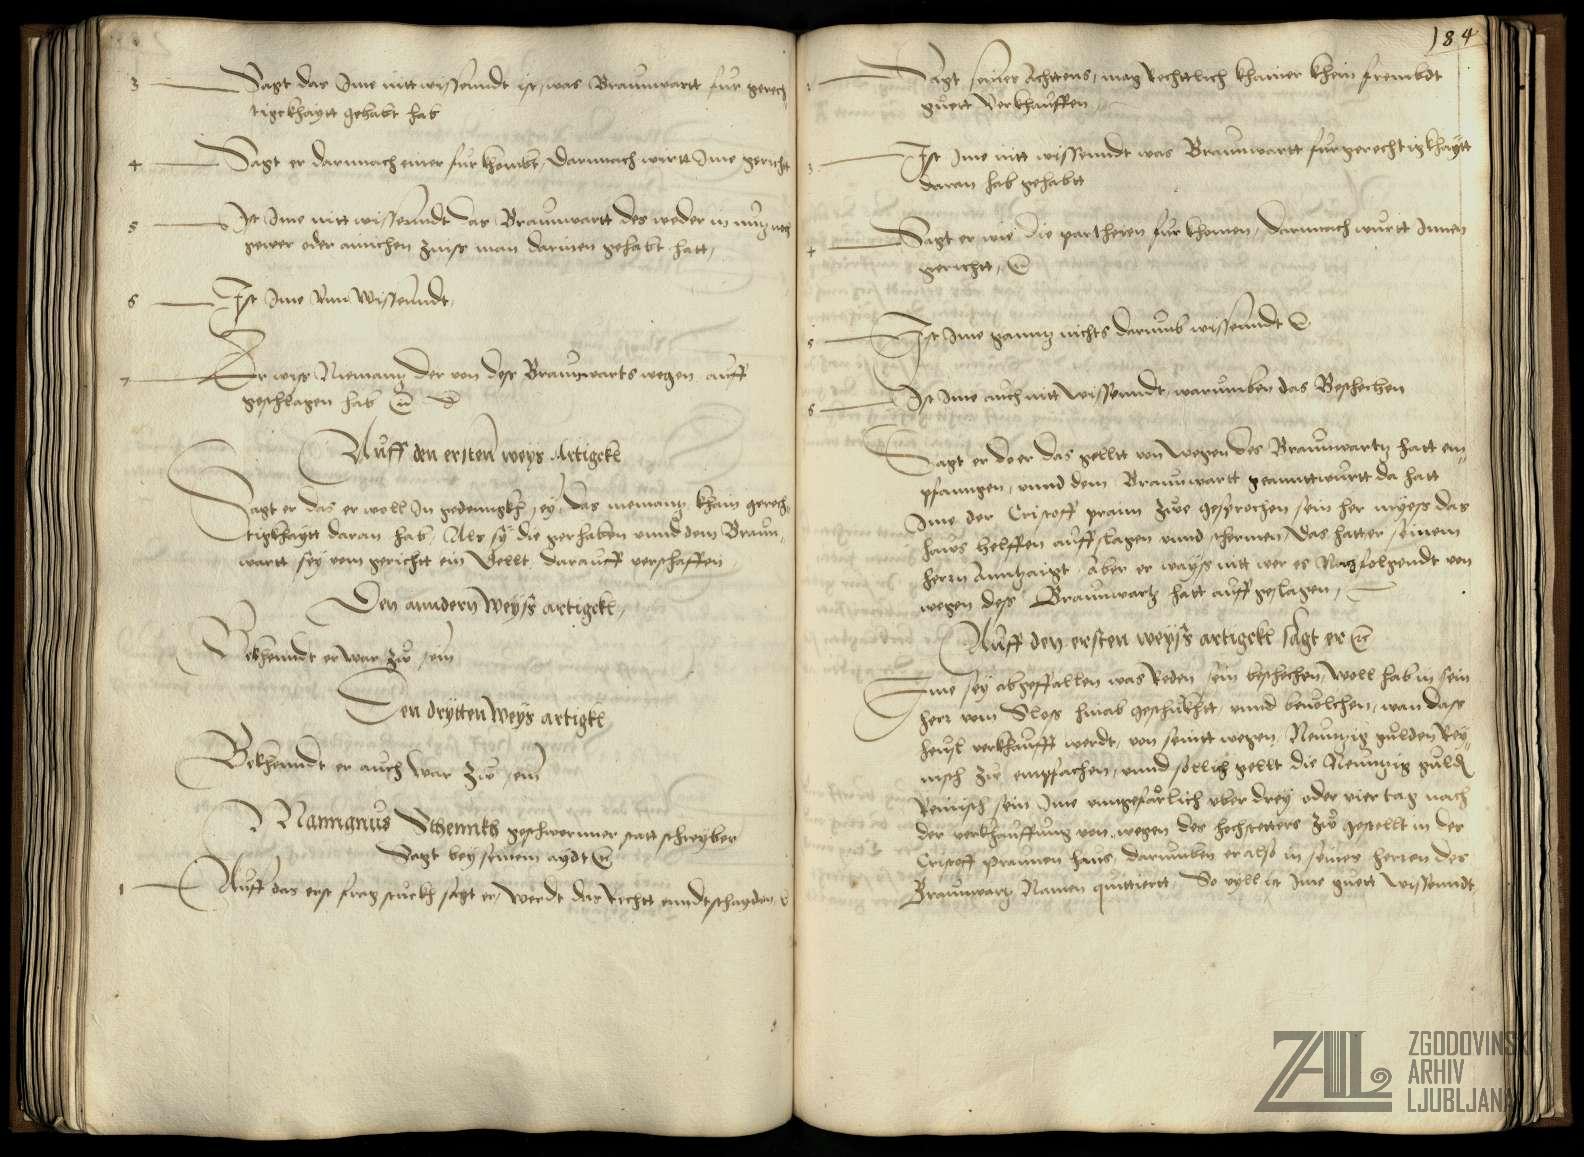 3 Sagt das Ime nitt wissenndt ist, was Braunwartt fur gerech-
tigckhaytt gehabt hab
4 Sagt er darnnach einer fur khombt, darnnach wirtt Ime gericht
5 Ist Ime nitt wissenndt das Braunwartt des weder in nutz noch
gewer oder ainichen Zinss man darinen gehabt hatt,
6 Ist Ime Vnn Wissenndt,
7 Er wiss Niemantz der von dess Braunwarts wegen auff
geschlagen hab
Auff den ersten weys Artigckl
Sagt er das er woll In gedennckh sey, das niemantz khain gerech-
tigkhaytt daran hab, Als sy die gerhaben vnnd dem Braun-
wartt sey vom gerichtt ein Vellt darauff verschaffen
Den anndern Weyss artigckl,
Bekhenndt er war zu sein
Den drytten Weys artigkl
Bekhenndt er auch war zu sein
Mamgnus Schennkh geschworner statt schreyber
Sagt bey seinem aydt
1 Auff das erst frag stuckh sagt er, Werdt das Rechtt enndtschayden
184
2 Sagt seines Achttens, mag Rechttlich khainer khein frembdt
guett Verkhauffen
3 Ist Ime nitt wissenndt was Braunwartt fur gerechtigkhaytt
daran hab gehabtt
4 Sagt er wie die partheyen fur khomen, darnnach wurtt Innen
gerichtt,
5 Ist Ime ganntz nichts darumb wissenndt
6 Ist Ime auch nitt Wissenndt, warumben das Beschechen
Sagt er do er das gelltt von Wegen des Braunwartz hatt em-
pfanngen, vnnd dem Braunwartt geanttwurtt da hatt
Ime der Cristoff prann zue gesprochen sein her muess das
haus helffen auffslagen vnnd schermen, Das hatt er seinem
herrn Anntzaigt Aber er wayss nitt wer es Nachfolgendt von
wegen dess Braunwartz hatt auff geslagen,
Auff den ersten weyss artigckl sagt er
Ime sey abgeffallen was Reden sein beschechen, Woll hab in sein
herr vom Sloss hinab geschickhtt, vnnd beuolchen, wan dass
heusl verkhaufft werdt, von seintt wegen Neuntzig gulden Rey-
nisch zu empfachen, vnnd sollich gellt die Neuntzig guld
Reinisch sein Ime vngefarlich vber drey oder vier tag nach
der verkhauffung von wegen des hochstetters zu gestellt in des
Cristoff praunen haus, darumben er also in seines herren des
Braunwartz Namen quittiertt, So vyll ist Ime guett Wissenndt,
ZGODOVINSKI
ARHIV
LJUBLJANA